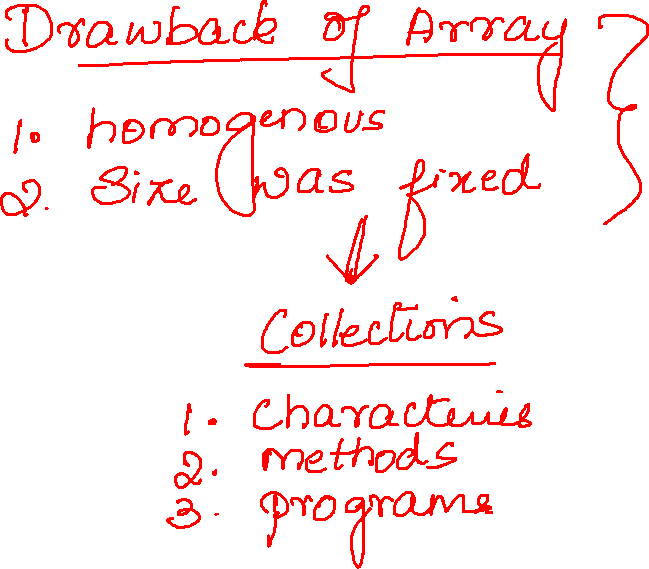 Drawback of Array
1. homogenous
2. Size was fixed
Collections
1. Characteries
2. methods
3. programs